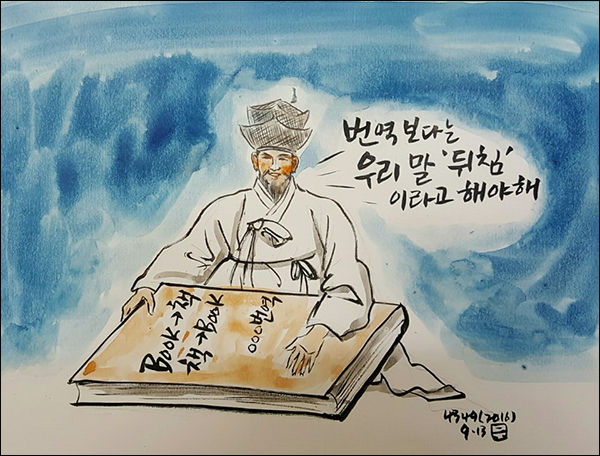 번역보다는
우리 말 '뒤침'
이라고 해야해
Book→책
책→Book
○○○번역
4349(2016)
9.13